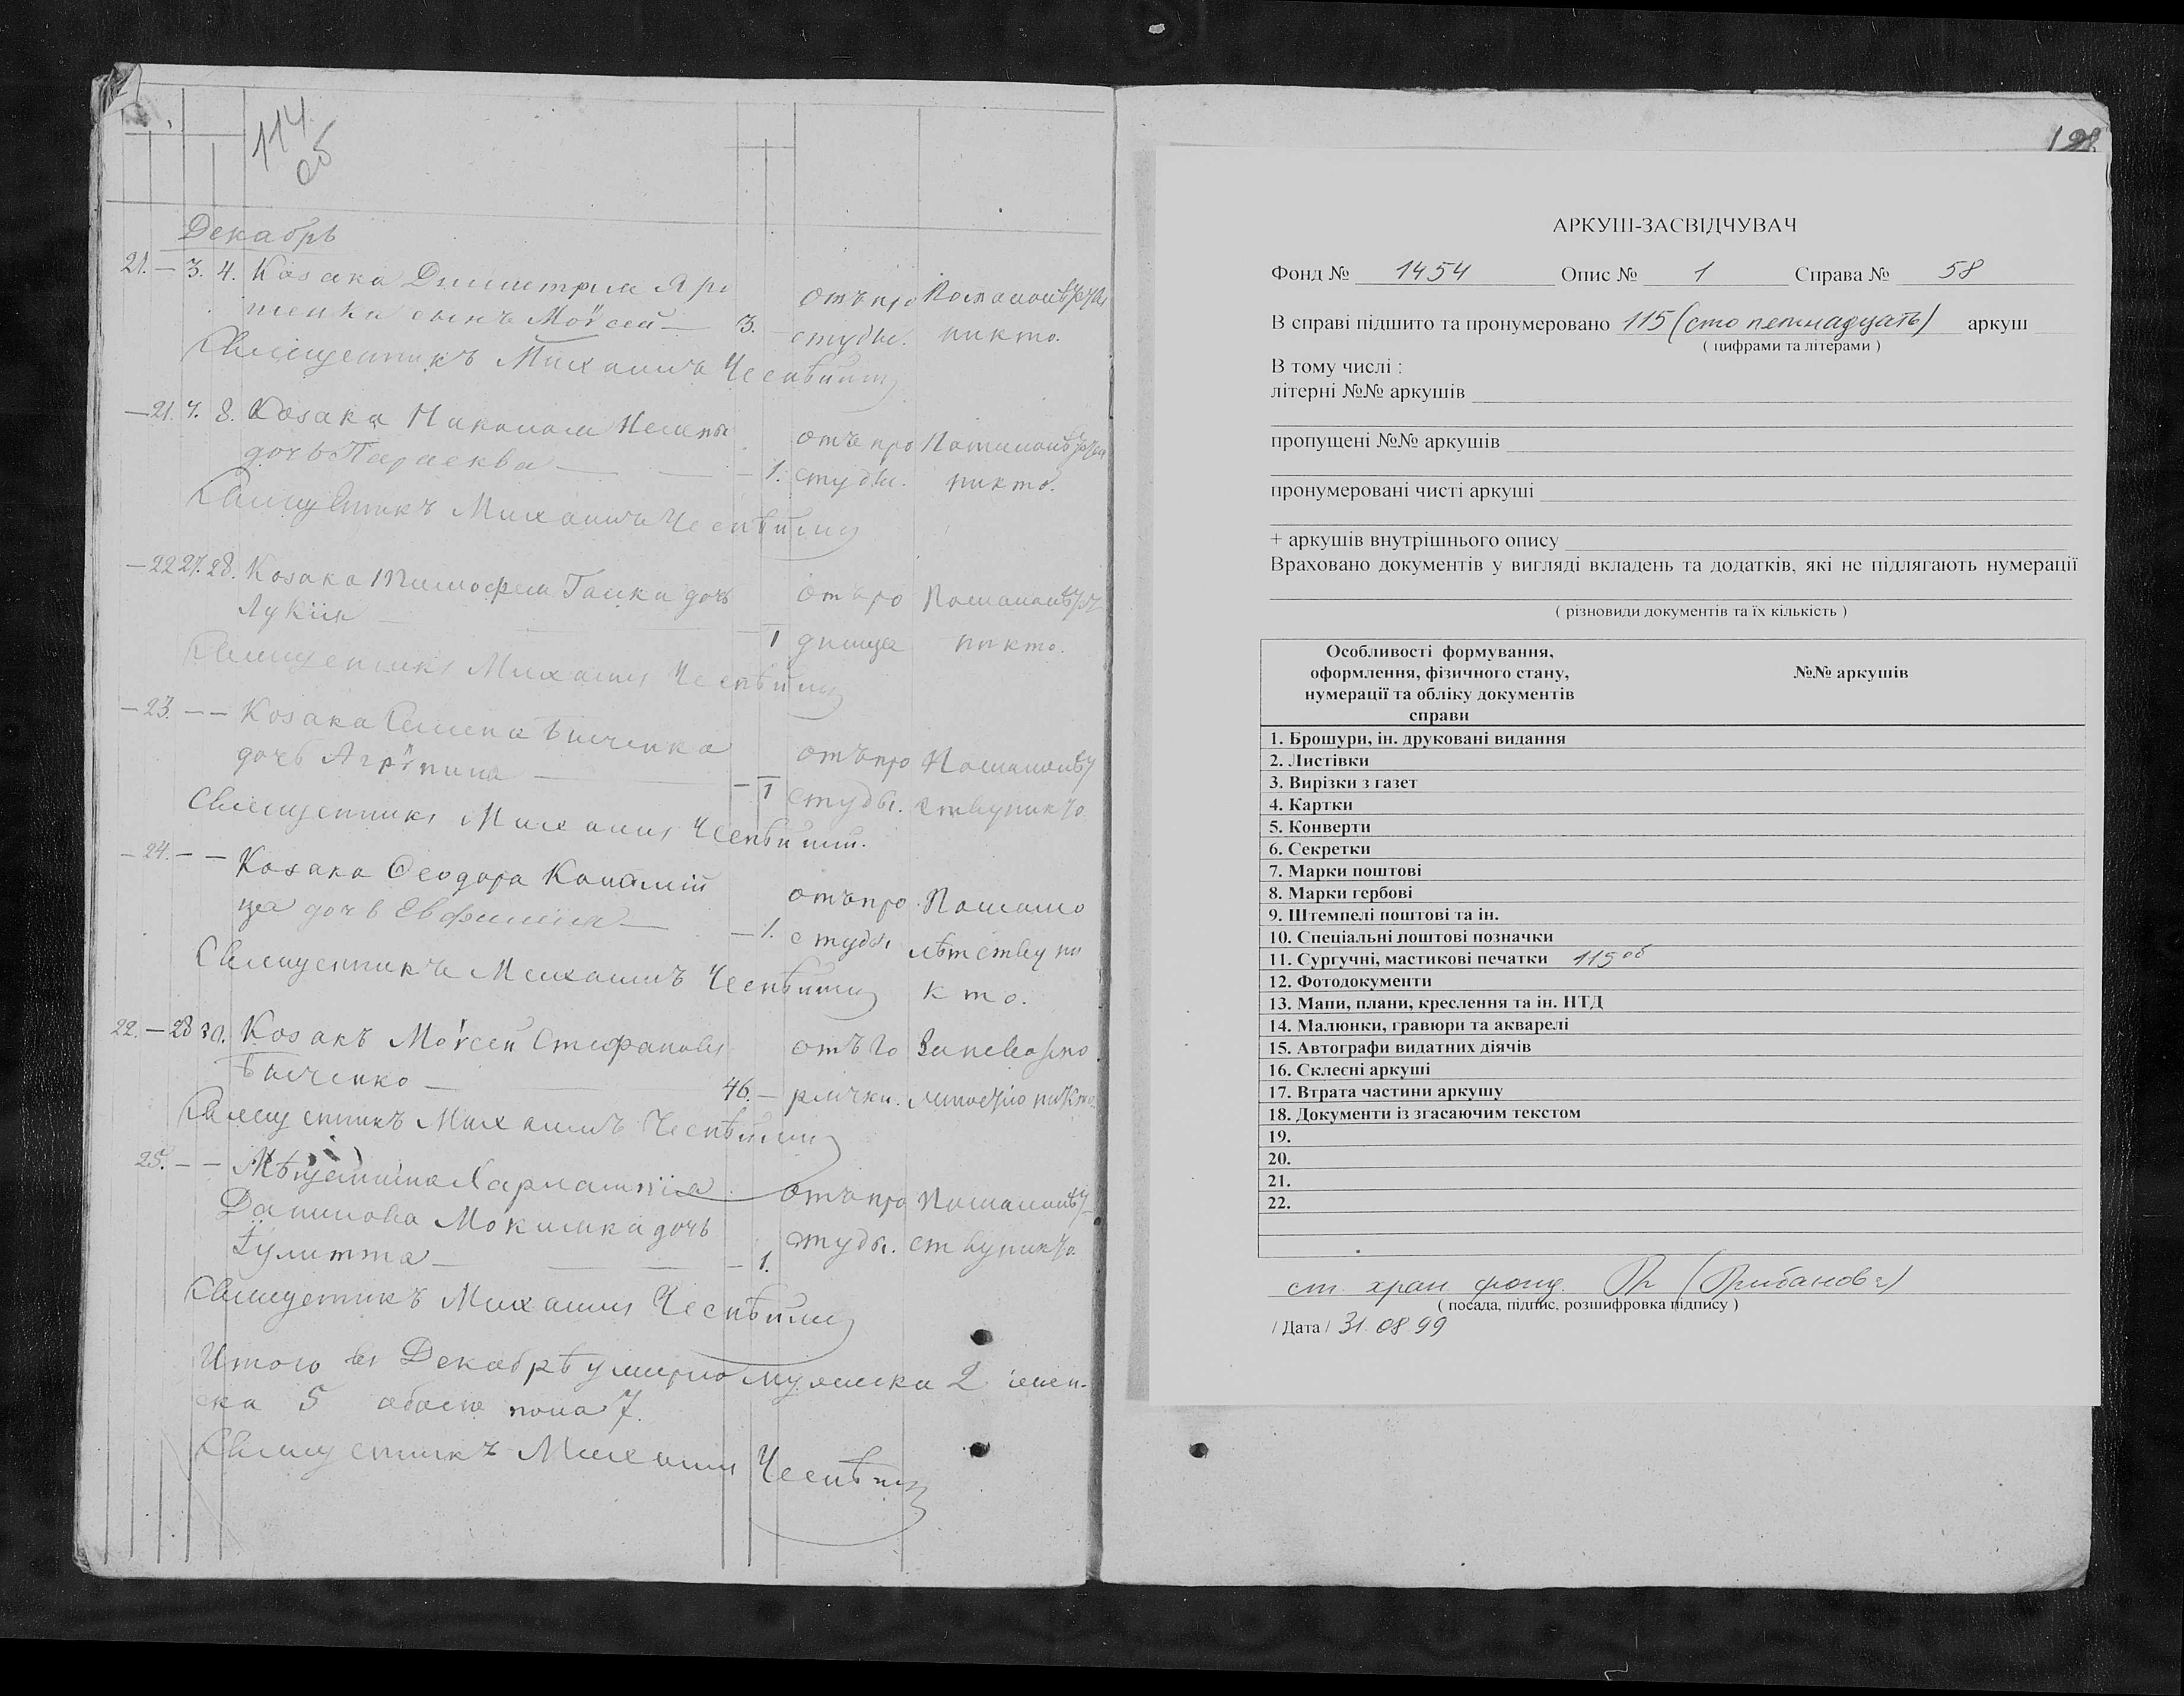 114
об
Декабрь
21. — 3. 4. Козака Димитрія Яро
шенка сынъ Моѵсей — 3. отъ про студы. По малолѣтству никто.
Священникъ Михаилъ
— 21. 7. 8. Козака Николая
дочь Параскева — 1. отъ про студы. По малолѣтству никто.
Священникъ Михаилъ
— 22 27. 28. Козака Тимофея Галки дочь
Лукія — 1 отъ ро димца По малолѣтству никто.
Священникъ Михаилъ
— 23. — — Козака Семена Быченка
дочь Агрѵпина — 1 отъ про студы. По малолѣтству никто
Священникъ Михаилъ
— 24. — — Козака Ѳеодора Каламій
ца дочь Евфимія — 1. отъ про студы По мало лѣтству ни кто.
Священникъ Михаилъ
22. — 28 30. Козакъ Моѵсей Стефановъ
Быченко — 46. — отъ го рячки. никто.
Священникъ Михаилъ
25. — — Мѣщанина Харлампія
Данилова Мокилка дочь
Іулитта — 1. отъ про студы. По малолѣтству никто.
Священникъ Михаилъ
Итого въ Декабрѣ умерло мужеска 2 женск-
ска 5 обоего пола 7.
Священникъ Михаилъ
АРКУШ-ЗАСВІДЧУВАЧ
Фонд № 1454 Опис № 1 Справа № 58
В справі підшито та пронумеровано 115 (сто пятнадцать) аркуш
( цифрами та літерами )
В тому числі :
літерні №№ аркушів
пропущені №№ аркушів
пронумеровані чисті аркуші
+ аркушів внутрішнього опису
Враховано документів у вигляді вкладень та додатків, які не підлягають нумерації
( різновиди документів та їх кількість )
Особливості формування,
оформлення, фізичного стану,
нумерації та обліку документів
справи
№№ аркушів
1. Брошури, ін. друковані видання
2. Листівки
3. Вирізки з газет
4. Картки
5. Конверти
6. Секретки
7. Марки поштові
8. Марки гербові
9. Штемпелі поштові та ін.
10. Спеціальні поштові позначки
11. Сургучні, мастикові печатки 115об
12. Фотодокументи
13. Мапи, плани, креслення та ін. НТД
14. Малюнки, гравюри та акварелі
15. Автографи видатних діячів
16. Склеєні аркуші
17. Втрата частини аркушу
18. Документи із згасаючим текстом
19.
20.
21.
22.
ст. хран фонд.
( посада, підпис, розшифровка підпису )
/ Дата / 31. 08 99